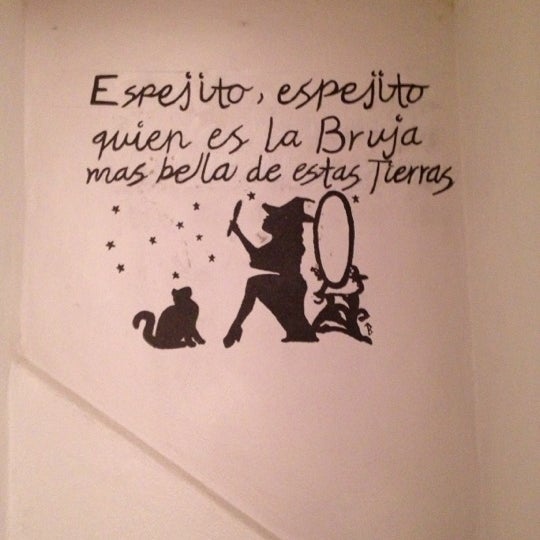 Espejito, espejito
quien es la Bruja
mas bella de estas Tierras